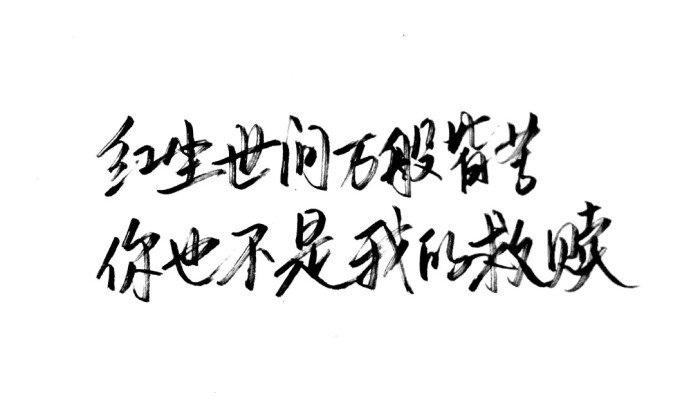 红尘世间万般皆苦
你也不是我的救赎